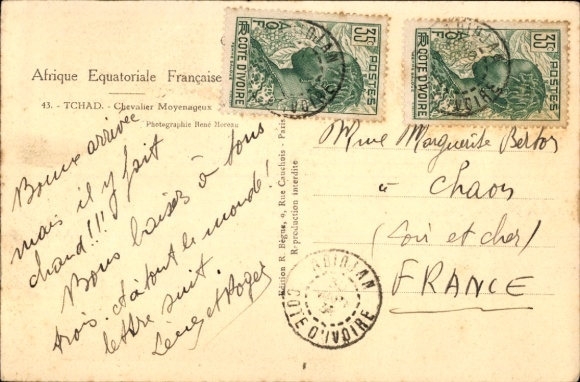 Afrique Equatoriale Française
43. - TCHAD. - Chevalier Moyenageux
Photographie René Moreau
Bonne arrivée
mais il y fait
chaud!!!
Bons baisers à tous
trois et à tout le monde!
lettre suit.
et Roger
Edition R. Bègue, 9, Rue Cauchois - Paris
Reproduction interdite
35F
AOF
RF COTE D'IVOIRE
POSTES
35F
AOF
RF COTE D'IVOIRE
POSTES
ABIDJAN
COTE D'IVOIRE
Mme Marguerite
à
Chaon
(Loir et cher)
FRANCE